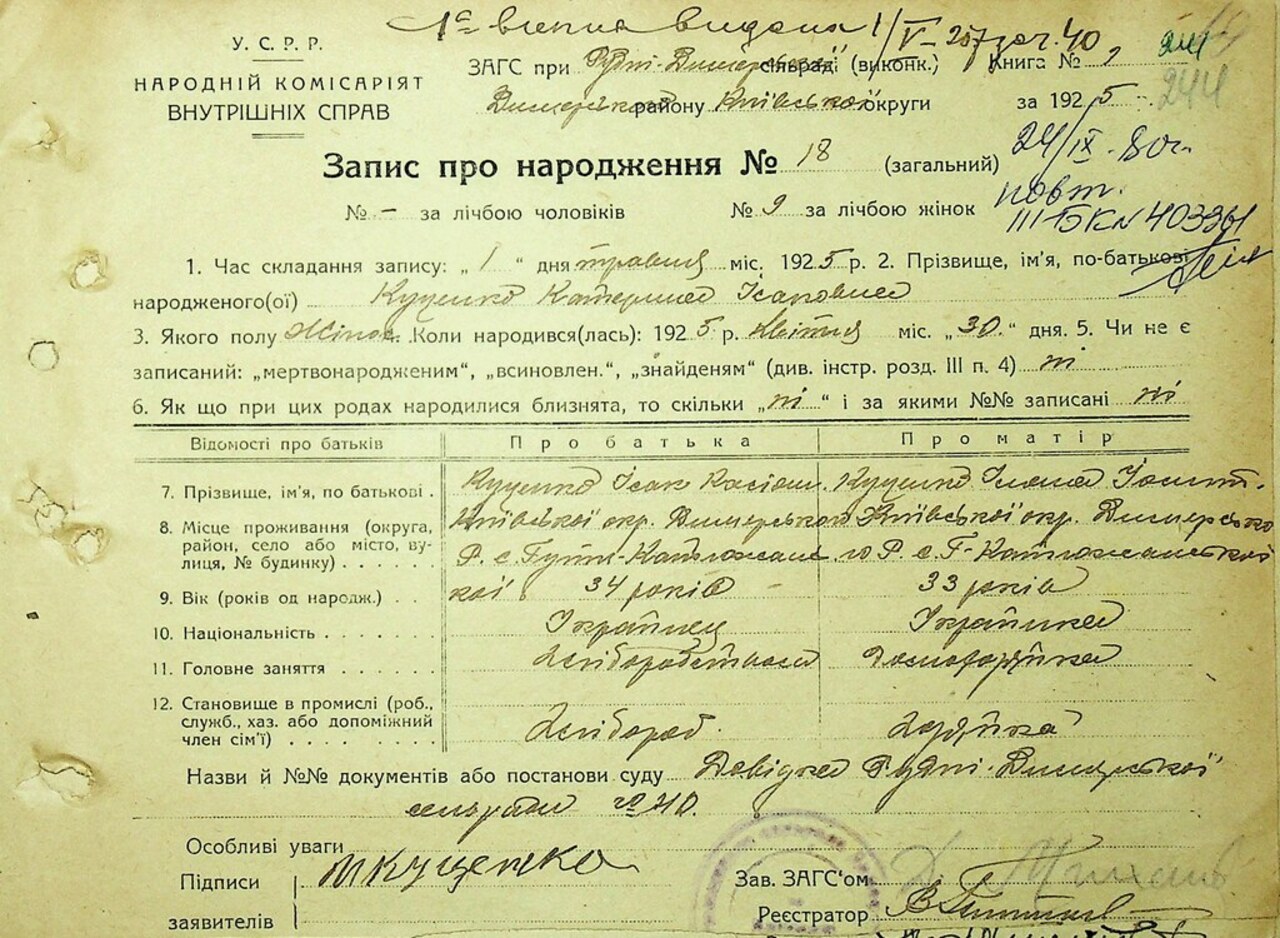 видана 1/V-257
У. С. Р. Р.
НАРОДНІЙ КОМІСАРІЯТ
ВНУТРІШНІХ СПРАВ
ЗАГС при Рудні-Димерській сільраді (виконк.) Книга №
Димерського району Київської округи за 1925
244
24/IX-80г.
повт.
III-БК № 403361
Запис про народження № 18 (загальний)
№ - за лічбою чоловіків № 9 за лічбою жінок
1. Час складання запису: „ 1 “ дня травня міс. 1925 р. 2. Прізвище, ім'я, по-батькові
народженого(ої) Куценко Катерина Ісаковна
3. Якого полу Жіноч. Коли народився(лась): 1925 р. квітня міс. „30.“ дня. 5. Чи не є
записаний: „мертвонародженим“, „всиновлен.“, „знайденям“ (див. інстр. розд. III п. 4) ні
6. Як що при цих родах народилися близнята, то скільки „ні“ і за якими №№ записані ні
Відомості про батьків Про батька Про матір
7. Прізвище, ім'я, по батькові . Куценко Ісак Касіян. Куценко
8. Місце проживання (округа, Київської окр. Димерського Київської окр. Димерсько
район, село або місто, ву- Р. с. Гута-Катюжанс го Р. с. Г-Катюжанської
лиця, № будинку) . . . . . . кої
9. Вік (років од народж.) . . 34 років - 33 років
10. Національність . . . . . . . Українец Українка
11. Головне заняття . . . . . . Хліборобство Домогосподарка
12. Становище в промислі (роб.,
служб., хаз. або допоміжний Хлібороб.
член сім'ї) . . . . . . . . .
Назви й №№ документів або постанови суду Довідка Рудні-Димерської
сільради № 40.
Особливі уваги
Підписи Куценко
заявителів
Зав. ЗАГС'ом
Реєстратор